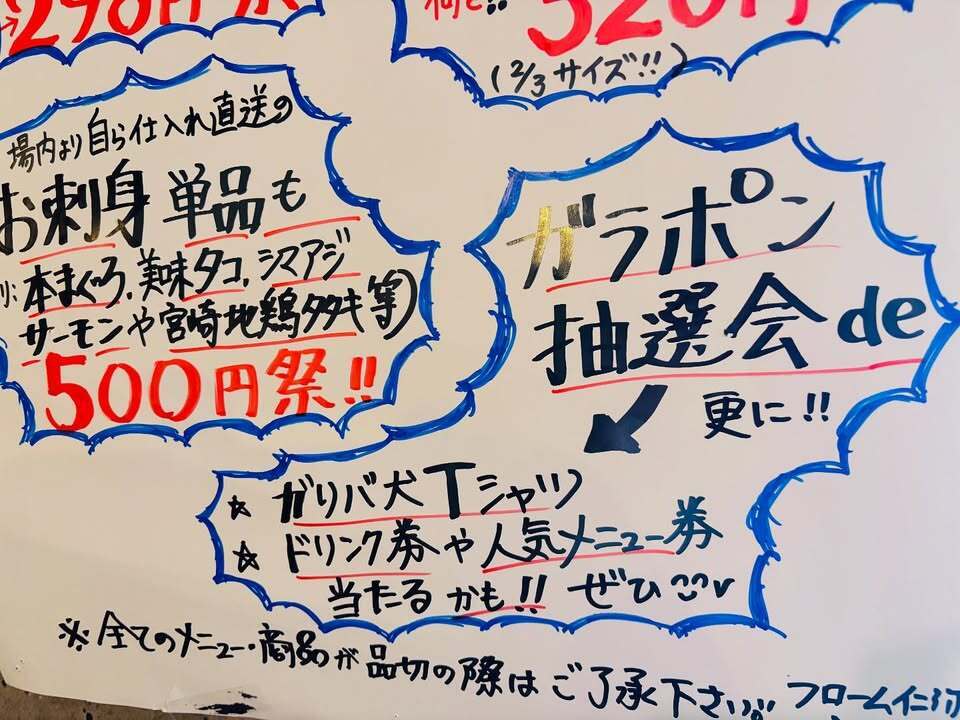 290円祭
何と!! 520円
(2/3サイズ!!)
場内より自ら仕入れ直送の
お刺身単品も
本まぐろ、美味タコ、シマアジ
サーモンや宮崎地鶏タタキ等)
500円祭!!
ガラポン
抽選会de
更に!!
☆ ガリバ犬Tシャツ
☆ ドリンク券や人気メニュー券
当たるかも!! ぜひ
※全てのメニュー・商品が品切の際はご了承下さい。 フローム